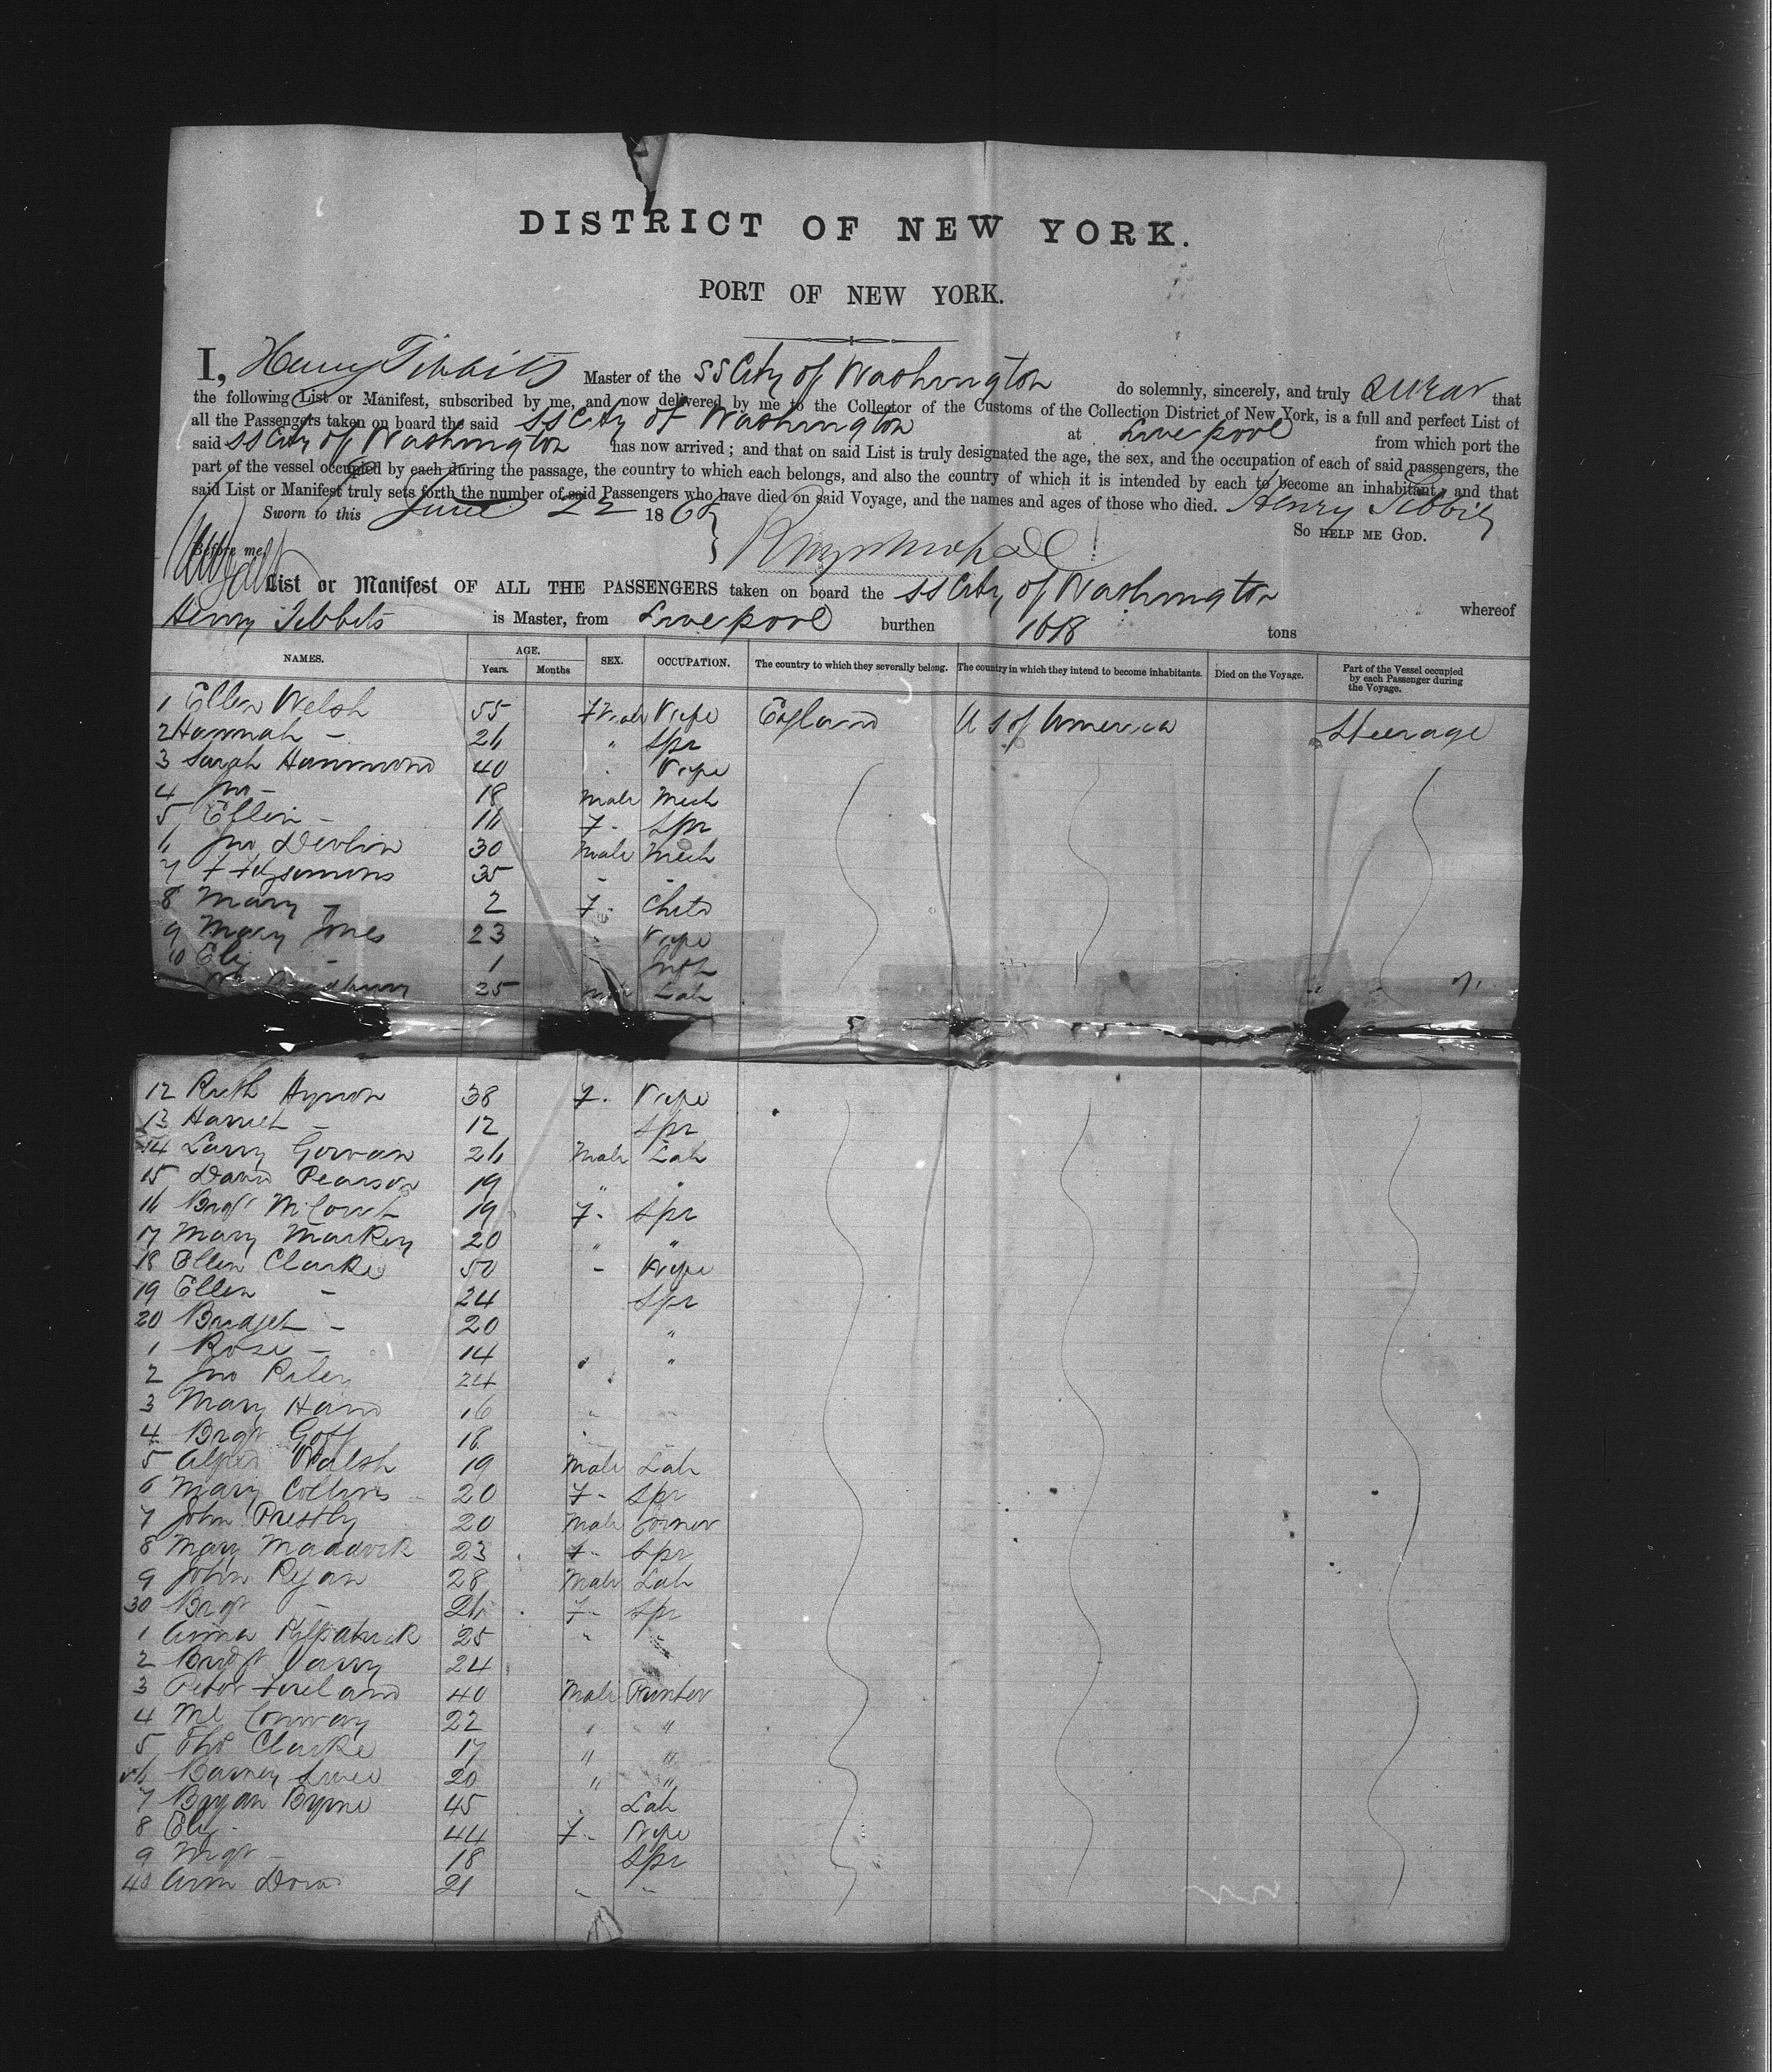 DISTRICT OF NEW YORK.
PORT OF NEW YORK.
I, Henry Tibbits Master of the SS City of Washington do solemnly, sincerely, and truly swear that
the following List or Manifest, subscribed by me, and now delivered by me to the Collector of the Customs of the Collection District of New York, is a full and perfect List of
all the Passengers taken on board the said SS City of Washington at Liverpool from which port the
said SS City of Washington has now arrived; and that on said List is truly designated the age, the sex, and the occupation of each of said passengers, the
part of the vessel occupied by each during the passage, the country to which each belongs, and also the country of which it is intended by each to become an inhabitant, and that
said List or Manifest truly sets forth the number of said Passengers who have died on said Voyage, and the names and ages of those who died. Henry Tibbits
Sworn to this June 22 186
So HELP ME GOD.
Before me,
List or Manifest OF ALL THE PASSENGERS taken on board the SS City of Washington whereof
Henry Tibbits is Master, from Liverpool burthen tons
NAMES. AGE. Years. Months SEX. OCCUPATION. The country to which they severally belong. The country in which they intend to become inhabitants. Died on the Voyage. Part of the Vessel occupied by each Passenger during the Voyage.
1 Ellen Welsh 55 Wife England U S of America Steerage
2 Hannah - 26 " Spr
3 Sarah Hammond 40 Wife
4 Jno - 18 Male Mech
5 Ellen - 16 F- Spr
6 Jno Devlin 30 Male Mech
7 Fitzsimons 35 - -
8 Mary - 2 F- Child
9 Mary Jones 23 Wife
10 Eliz - 1 Inft
25 Male Lab
12 Ruth 38 F. Wife
13 Harriet - 12 Spr
14 Larry 26 Male Lab
15 David Pearson 19 "
16 Brgt McCourt 19 F- Spr
17 Mary Markey 20 " "
18 Ellen Clarke 50 - Wife
19 Ellen - 24 Spr
20 Bridget - 20 "
1 Rose - 14 "
2 Jno Riley 24
3 Mary Hand 16
4 Brgt Goff 18
5 Walsh 19 Male Lab
6 Mary Collins 20 F- Spr
7 John Prestly 20 Male
8 Mary Maddock 23 F- Spr
9 John Ryan 28 Male Lab
30 Brgt - 26 F- Spr
1 Anna Kilpatrick 25 "
2 Bridgt 24
3 Peter 40 Male
4 Ml Conway 22 " "
5 Thos Clarke 17 " "
6 Barney 20 " "
7 Bryan Byrne 45 Lab
8 Eliz - 44 F- Wife
9 Mrgt - 18 Spr
40 Ann 21 - -